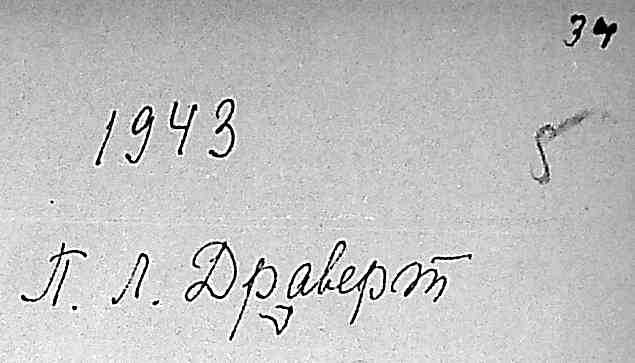 34
1943
5
П. Л. Драверт